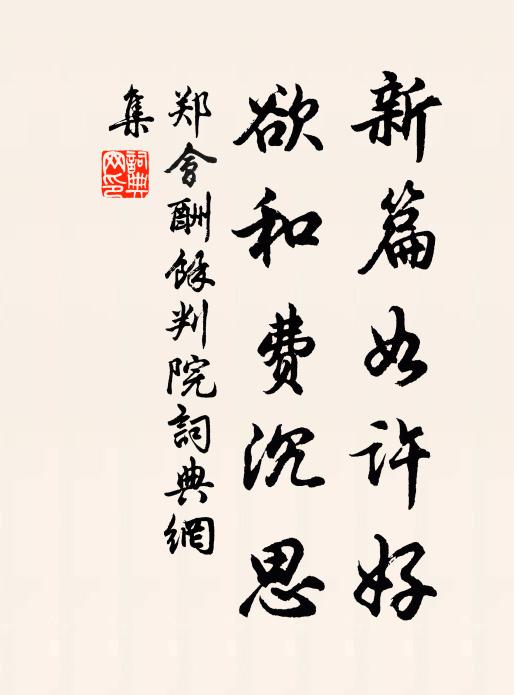 新篇如许好
欲和费沉思
郑會酬餘判院詞典網
集
詞典
网印